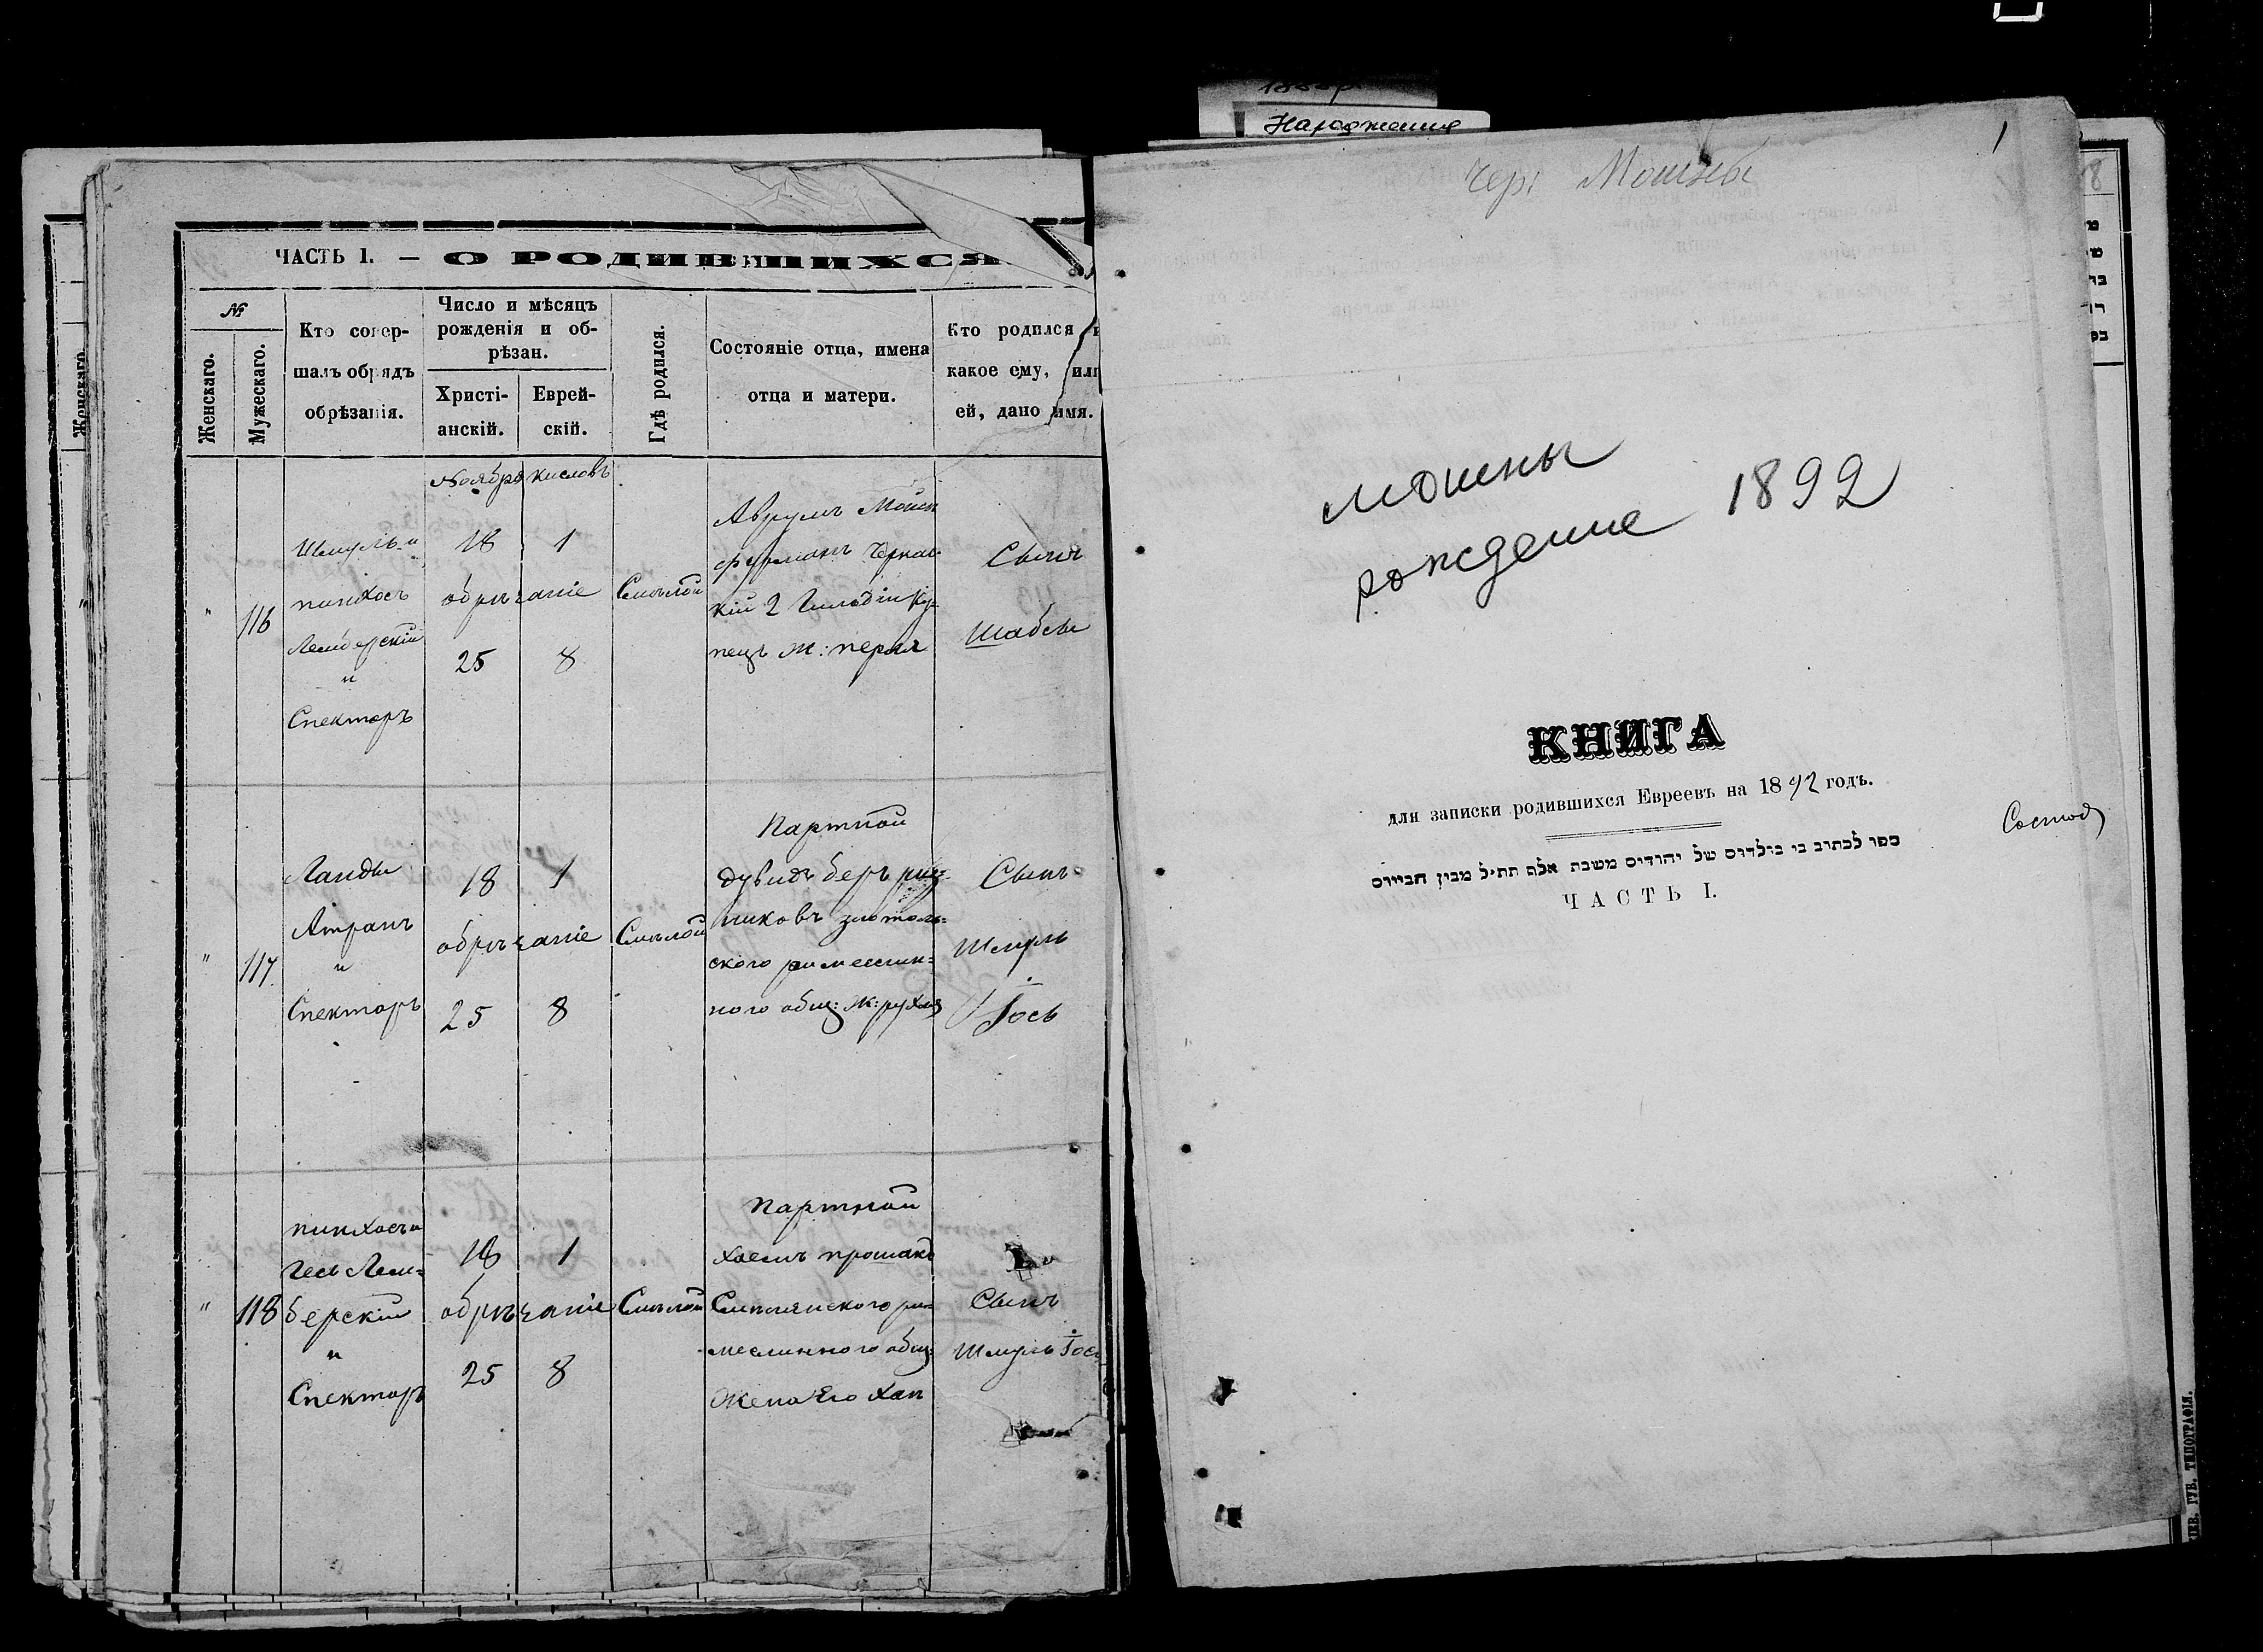 ЧАСТЬ 1. — О РОДИВШИХСЯ
№
Женскаго.
Мужескаго.
Кто совер-
шалъ обрядъ
обрѣзанія.
Число и мѣсяцъ
рожденія и об-
рѣзан.
Христі-
анскій.
Еврей-
скій.
Гдѣ родился.
Состояніе отца, имена
отца и матери.
Кто родился и
какое ему, или
ей, дано имя.
Ноября кисловъ
"
116
Шмуль и
пинхосъ
Лемберскій
и
Спекторъ
18 1
обрѣзаніе
25 8
Смѣлой
Аврумъ
фурманъ Черкас-
кій 2 Гильдіи Ку-
пецъ Ж: перля
Сынъ
Шабсы
"
117.
Ландъ
Атранъ
и
Спекторъ
18 1
обрѣзаніе
25 8
Смѣлой
Партной
дувидъ беръ
никовъ златополь-
ского ремеслен=
ного общ: Ж: рухля
Сынъ
Шмуль
Іось
"
118
пинхосъ и
Лем=
берскій
и
Спекторъ
18 1
обрѣзаніе
25 8
Смѣлой
Партной
хаемъ
Смѣлянского ре-
месленного общ:
Жена Его Хая
Сынъ
Шмуль Іось
Народження
1
Чер: Мошны
Мошны
рождение 1892
КНИГА
для записки родившихся Евреевъ на 1892 годъ.
ספר לכתוב בו נולדים של יהודים משנת אלף תת״ל מבין חביירים
ЧАСТЬ I.
Состоя
Женскаго.
8
ГУБ. ТИПОГРАФІЯ.